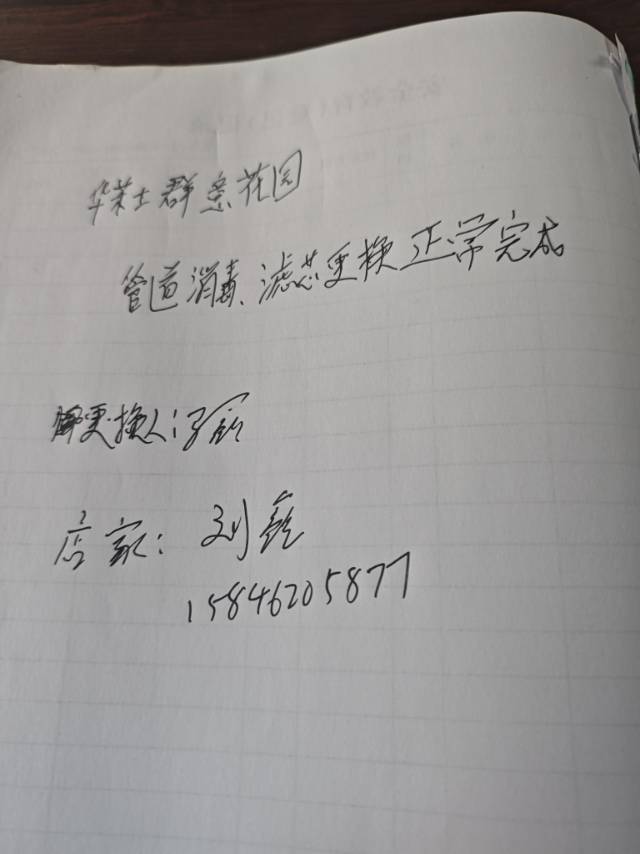 华莱士群繁花园
管道消毒、滤芯更换正常完成
更换人:
店家: 刘鑫
15846205877